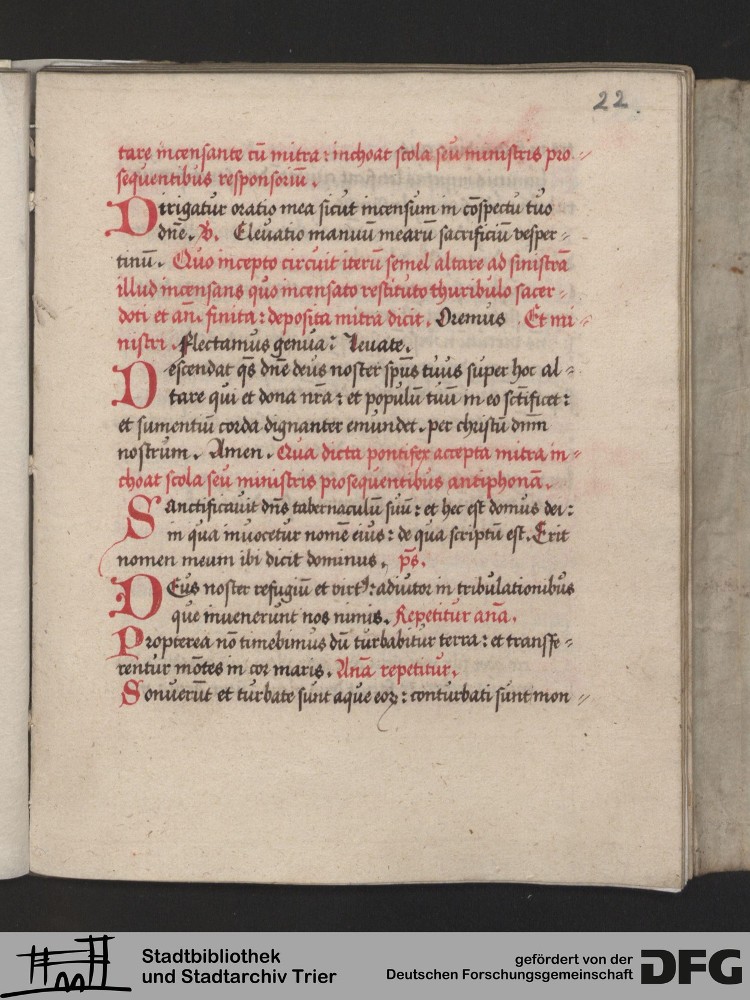 22.
tare incensante cū mitra: inchoat scola seu ministris pro⸗
sequentibus responsoriū.
Dirigatur oratio mea sicut incensum in cōspectu tuo
dn̄e. V. Eleuatio manuū mearū sacrificiū vesper⸗
tinū. Quo incepto circuit iterū semel altare ad sinistrā
illud incensans quo incensato restituto thuribulo sacer⸗
doti et an̄. finita: deposita mitra dicit. Oremus. Et mi⸗
nistri. Flectamus genua: leuate.
Descendat q̄s dn̄e deus noster sp̄us tuus super hoc al⸗
tare qui et dona nr̄a: et populū tuū in eo sc̄tificet:
et sumentiū corda dignanter emundet. per christū dn̄m
nostrum. Amen. Qua dicta pontifex accepta mitra in⸗
choat scola seu ministris prosequentibus antiphonā.
Sanctificauit dn̄s tabernaculū suū: et hec est domus dei:
in qua inuocetur nomē eius: de qua scriptū est. Erit
nomen meum ibi dicit dominus. ps̄.
Deus noster refugiū et virtꝰ: adiutor in tribulationibus
que inuenerunt nos nimis. Repetitur an̄a.
Propterea nō timebimus dū turbabitur terra: et transfe⸗
rentur mōtes in cor maris. An̄a repetitur.
Sonuerūt et turbate sunt aque eoꝝ: conturbati sunt mon⸗
Stadtbibliothek
und Stadtarchiv Trier
gefördert von der
Deutschen Forschungsgemeinschaft
DFG